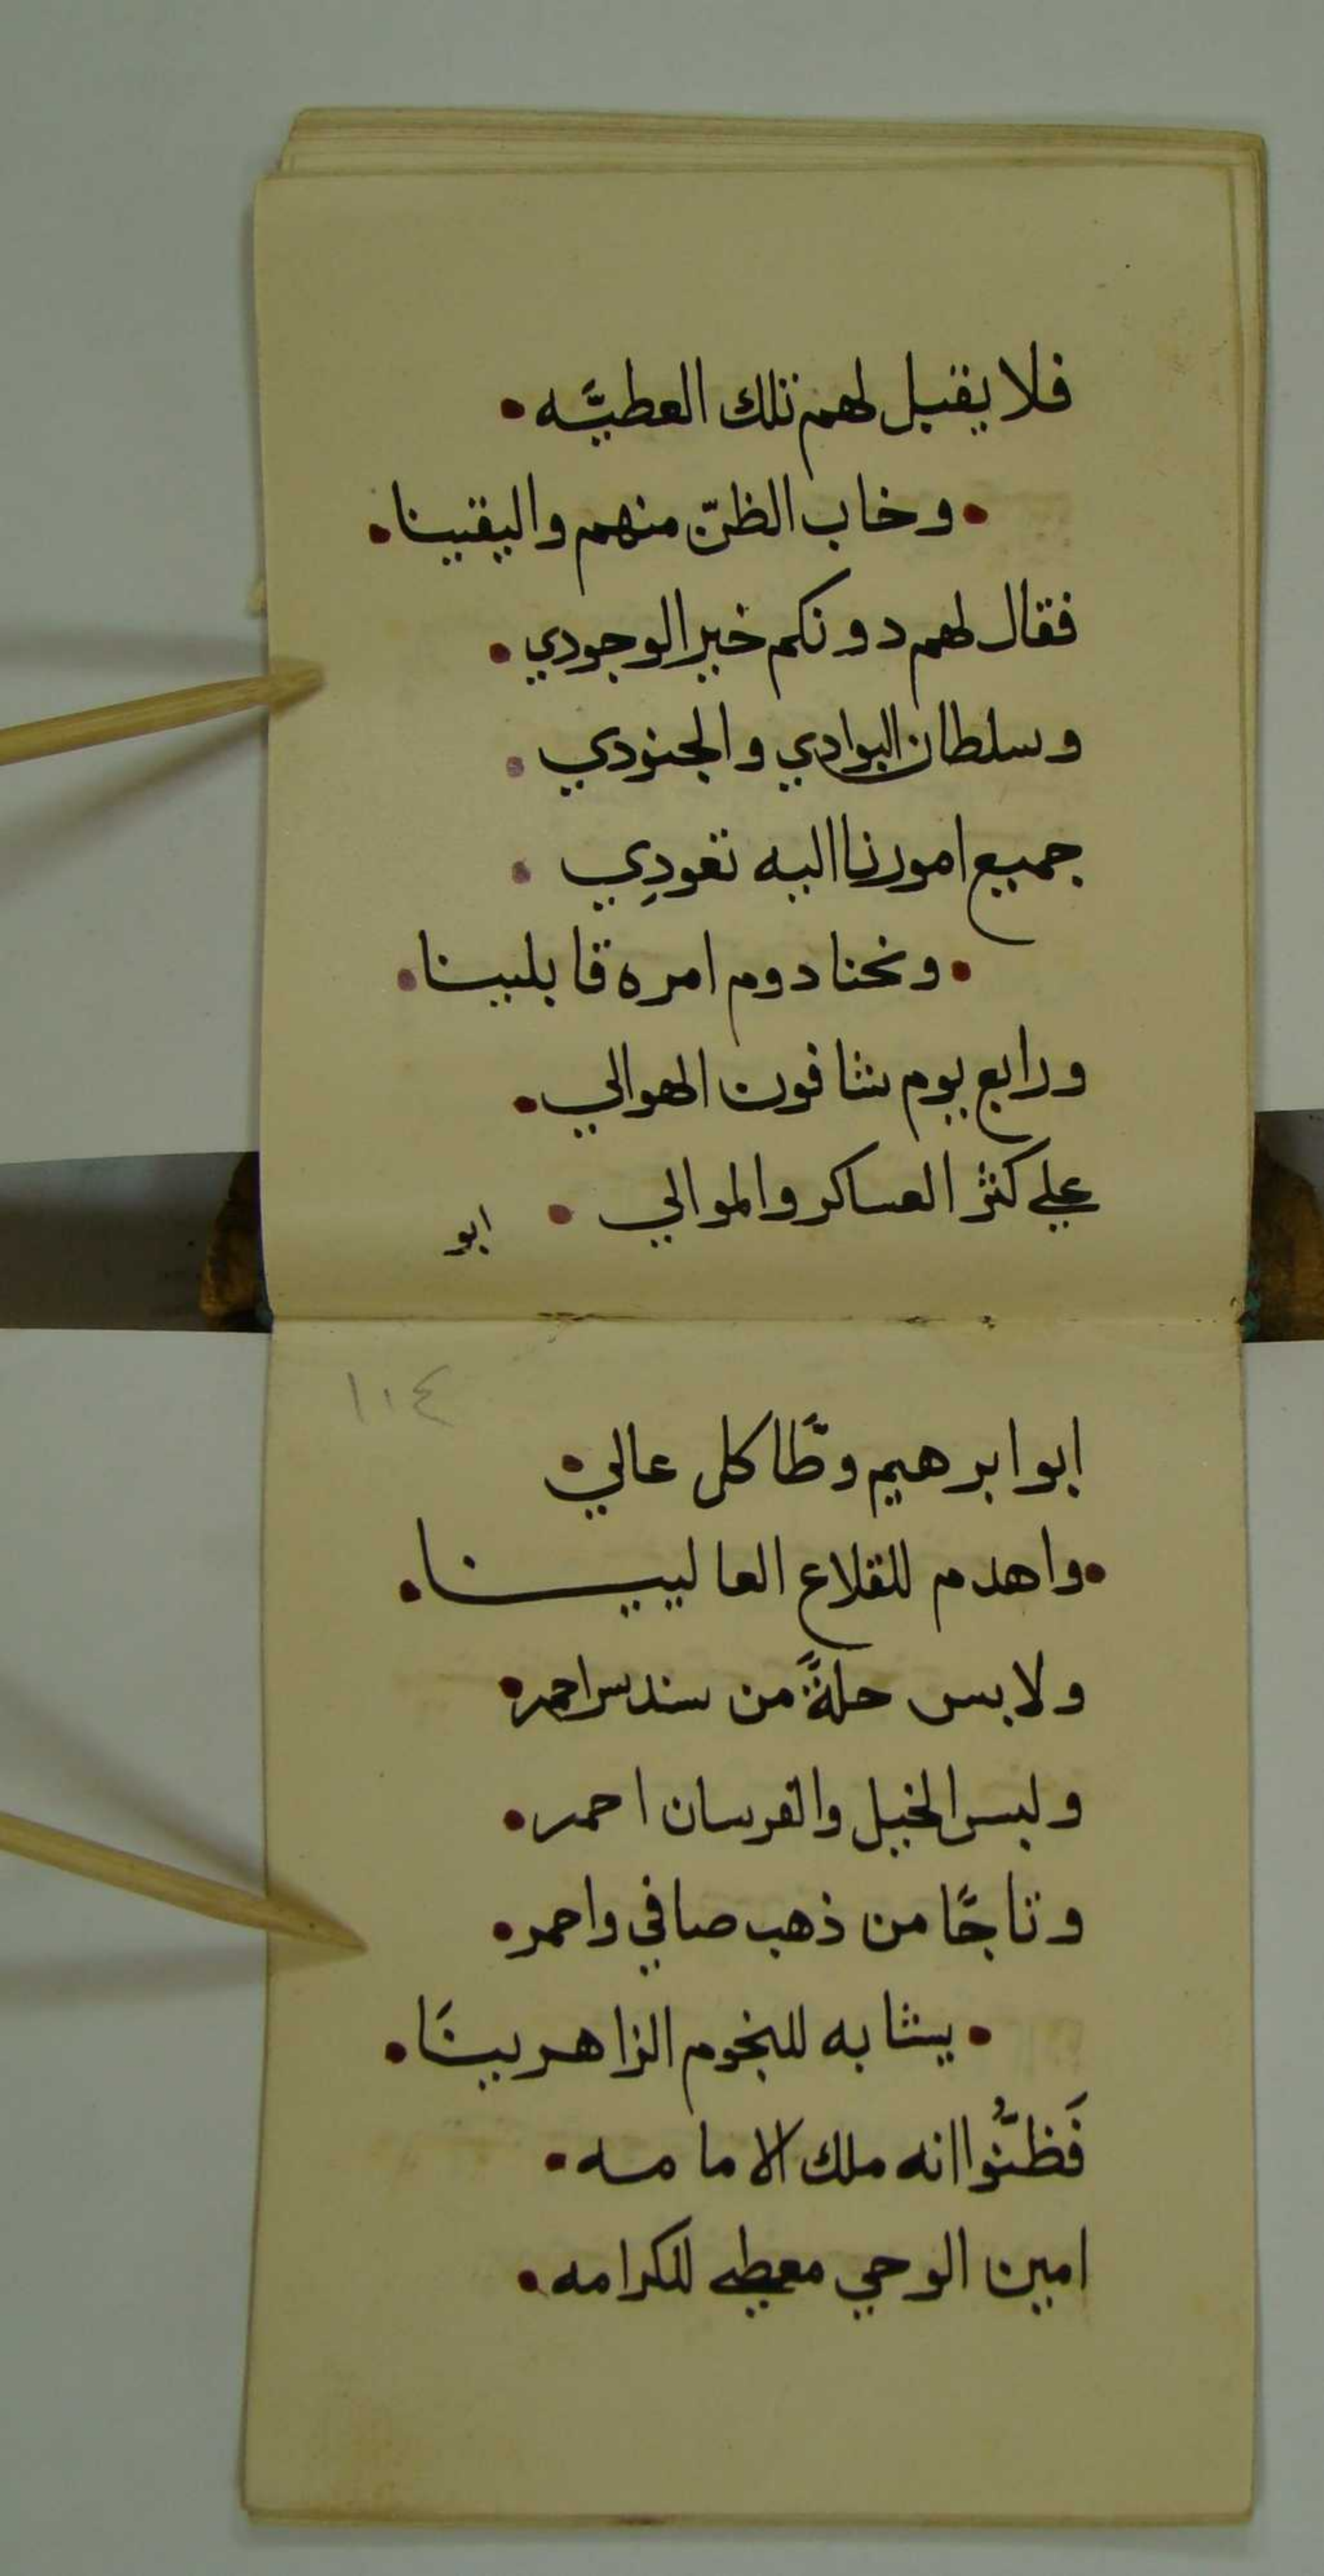 فلا يقبل لهم تلك العطيَّه •
• وخاب الظنّ منهم واليقينا •
فقال لهم دونكم خير الوجودي •
وسلطان البوادي والجنودي •
جميع امورنا اليه تعودِي •
• ونحنا دوم امره قابلينا •
ورابع يوم شافون الهوالي •
علي كثر العساكر والموالي •
ابو
١١٤
ابو ابرهيم وطَّا كل عالي •
• واهدم للقلاع العاليينا •
ولابس حلةً من سندس احمر •
ولبس الخيل والفرسان احمر •
وتاجًا من ذهب صافي واحمر •
• يشابه للنجوم الزاهرينَا •
فَظنُّوا انه ملك الامامه •
امين الوحي معطي للكرامه •